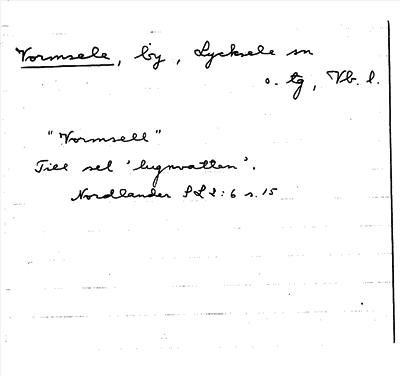 Vormsele, by, Lycksele sn
o. tg, Vb. l.
"Vormsell"
Till sel 'lugnvatten'.
Nordlander SL 2:6 s. 15